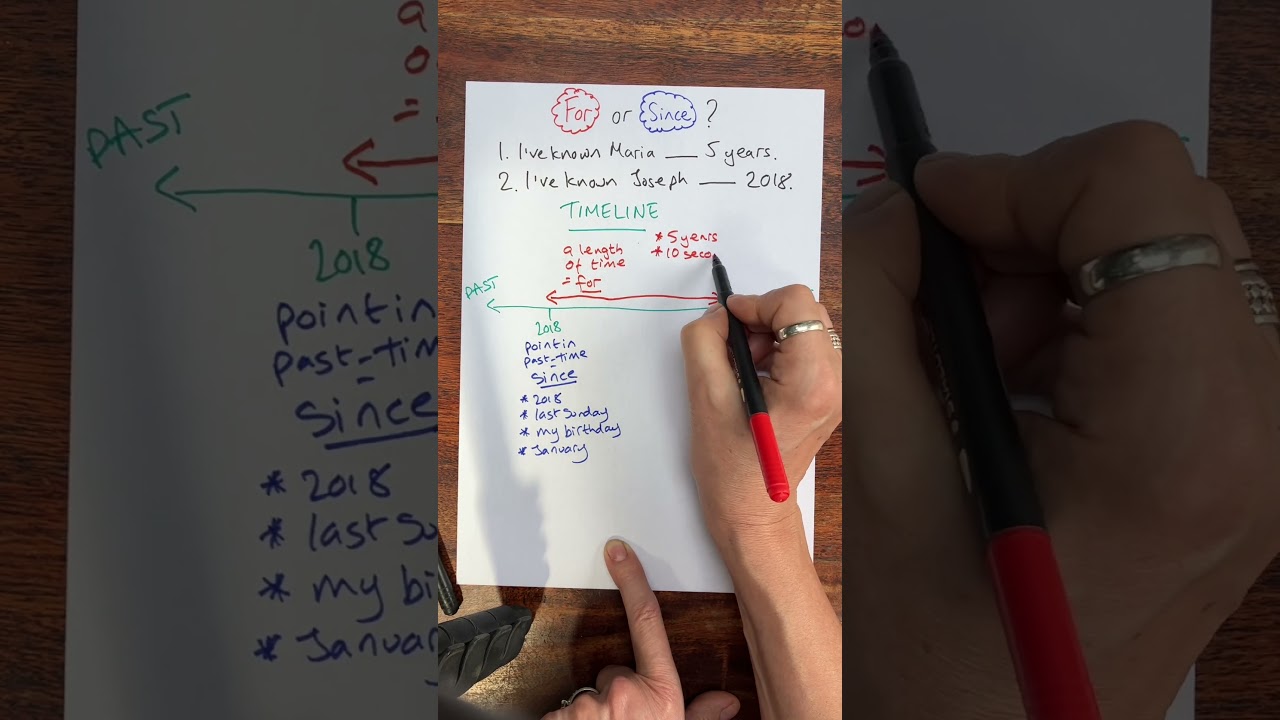 For or Since ?
1. I've known Maria ___ 5 years.
2. I've known Joseph ___ 2018.
TIMELINE
* 5 years
* 10 seco
a length
of time
= for
PAST
2018
point in
past-time
= since
* 2018
* last Sunday
* my birthday
* January